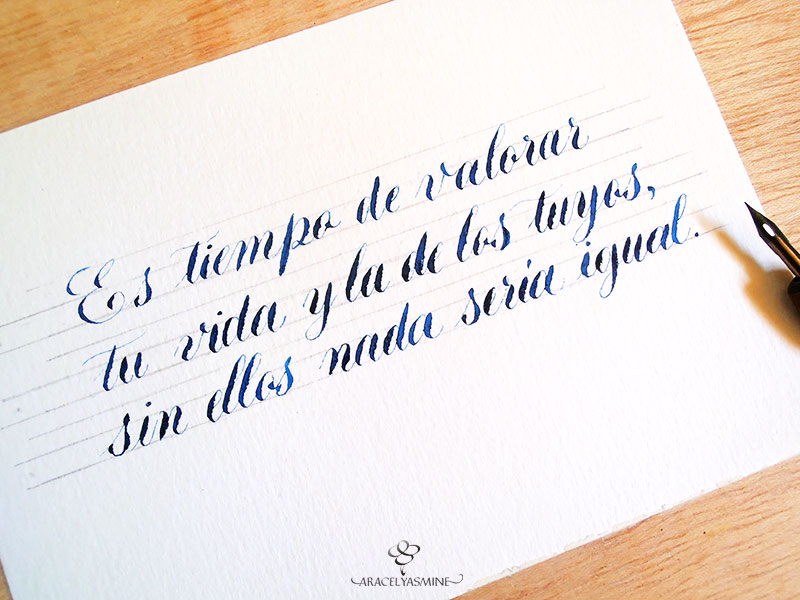 Es tiempo de valorar
tu vida y la de los tuyos,
sin ellos nada sería igual.
ARACELYASMINE